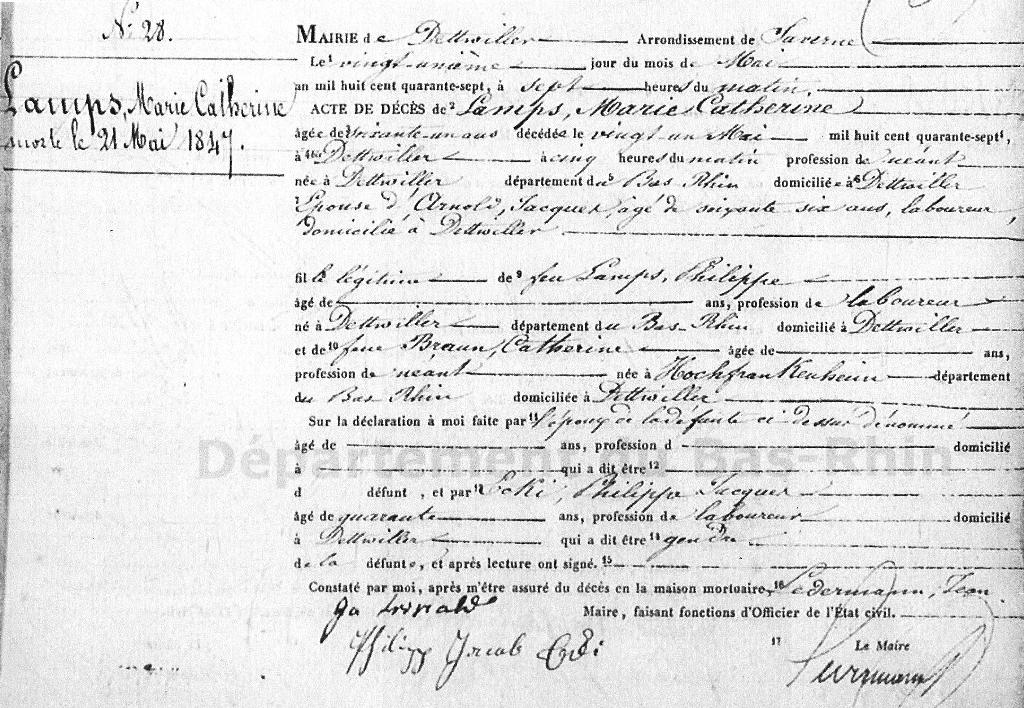 N.° 28.
Lamps, Marie Catherine
morte le 21 Mai 1847.
MAIRIE de Dettwiller Arrondissement de Saverne
Le 1 vingt-unième jour du mois de Mai
un mil huit cent quarante-sept, à sept heures du matin.
ACTE DE DÉCÈS de 2 Lamps, Marie Catherine
âgée de 3 soixante-un ans décédée le vingt un Mai mil huit cent quarante-sept,
à Dettwiller à cinq heures du matin profession de néant
née à Dettwiller département du 5 Bas-Rhin domiciliée à 6 Dettwiller
7 Epouse d'Arnold, Jacques, âgé de soixante six ans, laboureur,
domicilié à Dettwiller
fille légitime de 9 feu Lamps, Philippe
âgé de ans, profession de laboureur
né à Dettwiller département du Bas-Rhin domicilié à Dettwiller
et de 10 feue Braun, Catherine âgée de ans,
profession de néant née à Hochfrankenheim département
du Bas Rhin domiciliée à Dettwiller
Sur la déclaration à moi faite par 11 l'époux de la défunte ci dessus dénommé
âgé de ans, profession d domicilié
à qui a dit être 12
d défunt , et par 13 Ecki, Philippe Jacques
âgé de quarante ans, profession de laboureur domicilié
à Dettwiller qui a dit être 14 gendre
de la défunte, et après lecture ont signé. 15
Constaté par moi, après m'être assuré du décès en la maison mortuaire 16 Ledermann, Jean
Maire, faisant fonctions d'Officier de l'État civil.
Philipp Jacob Ecki
17 Le Maire
Département du Bas-Rhin